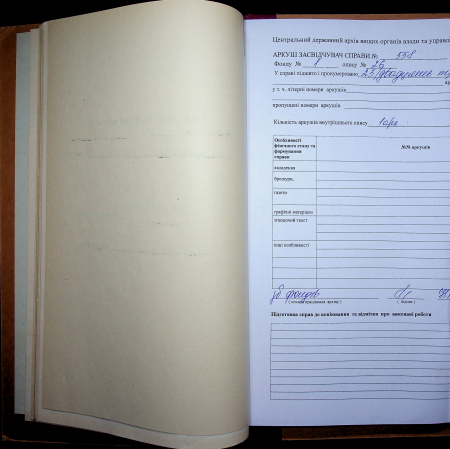 Центральний державний архів вищих органів влади та управл
АРКУШ ЗАСВІДЧУВАЧ СПРАВИ № 558
Фонду № 1 опису № 26
У справі підшито і пронумеровано 23 (двадцять
у т. ч. літерні номери аркушів
пропущені номери аркушів
Кількість аркушів внутрішнього опису 1 арк
Особливості фізичного стану та формування справи
№№ аркушів
вкладення
брошури,
газети
графічні матеріали
згасаючий текст
інші особливості
зб фондів
( підпис )
Підготовка справ до копіювання та відмітки про виконані роботи